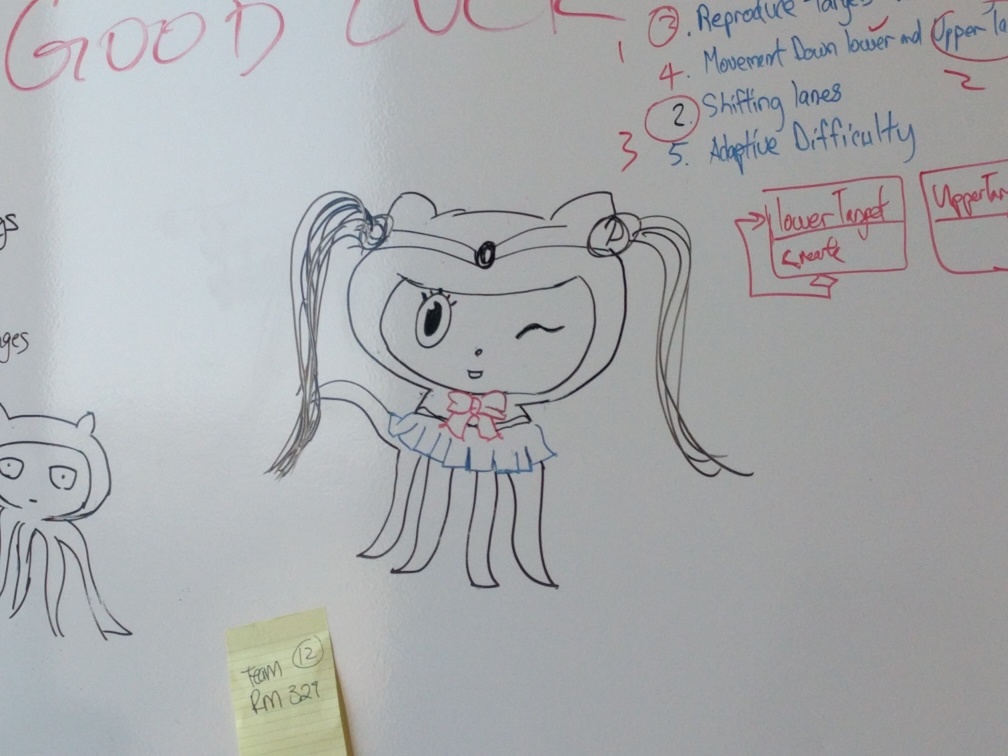 GOOD LUCK
3. Reproduce Targets
1
4. Movement Down lower and Upper Ta
2
2. Shifting lanes
3
5. Adaptive Difficulty
lowerTarget
create
UpperTar
gs
ges
team 12
RM 329